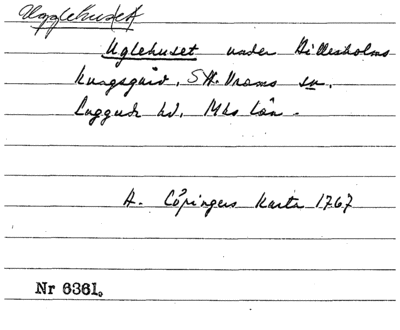 Ugglehuset
Uglehuset under Hillesholms
kungsgård, St. Vrams sn.
Luggude hd, Mhs län.
A. Cöpingers karta 1767
Nr 6361.